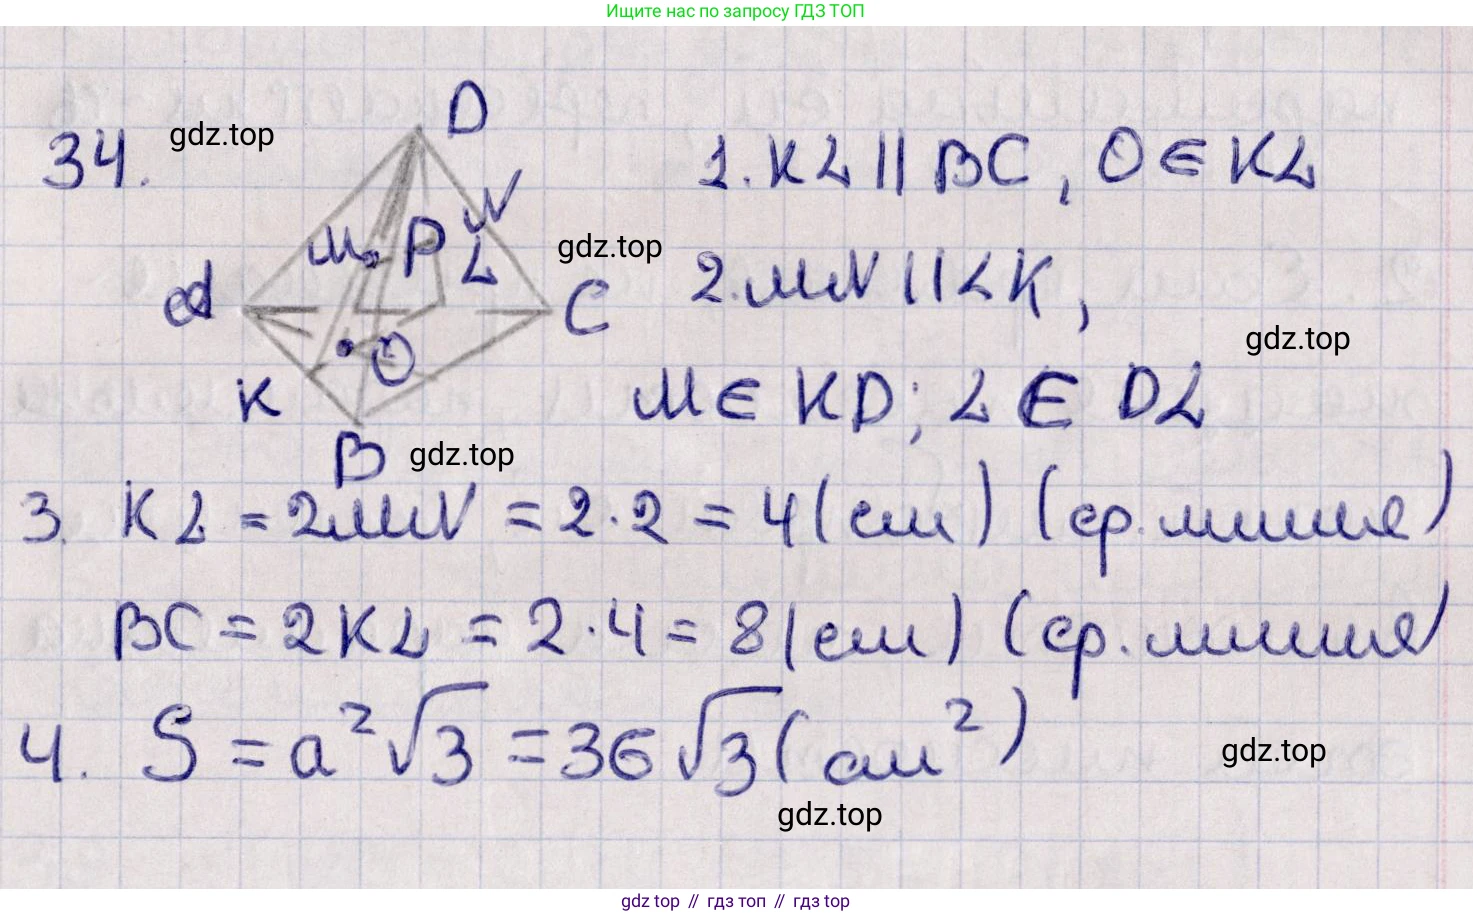 Ищите нас по запросу ГДЗ ТОП
34.
gdz.top
D
N
M
P
L
A
C
O
K
B
gdz.top
1. KL || BC, O ∈ KL
gdz.top
2. MN || LK,
gdz.top
M ∈ KD; L ∈ DL
3. KL = 2MN = 2·2 = 4(см) (ср. линия)
BC = 2KL = 2·4 = 8(см) (ср. линия)
4. S = a²√3 = 36√3 (см²)
gdz.top
gdz.top
gdz top // гдз топ // гдз top